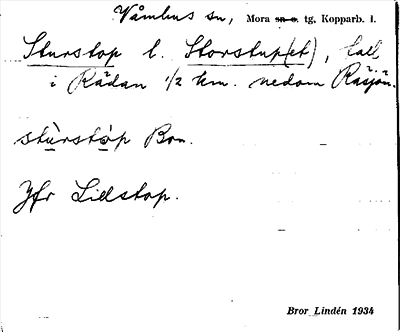 Våmhus sn, Mora sn o. tg, Kopparb. l.
Sturstop l. Storstup(et),
i Rådan 1/2 km. nedom Räsjön.
stùrstòp Bon.
Jfr Lidstop.
Bror Lindén 1934